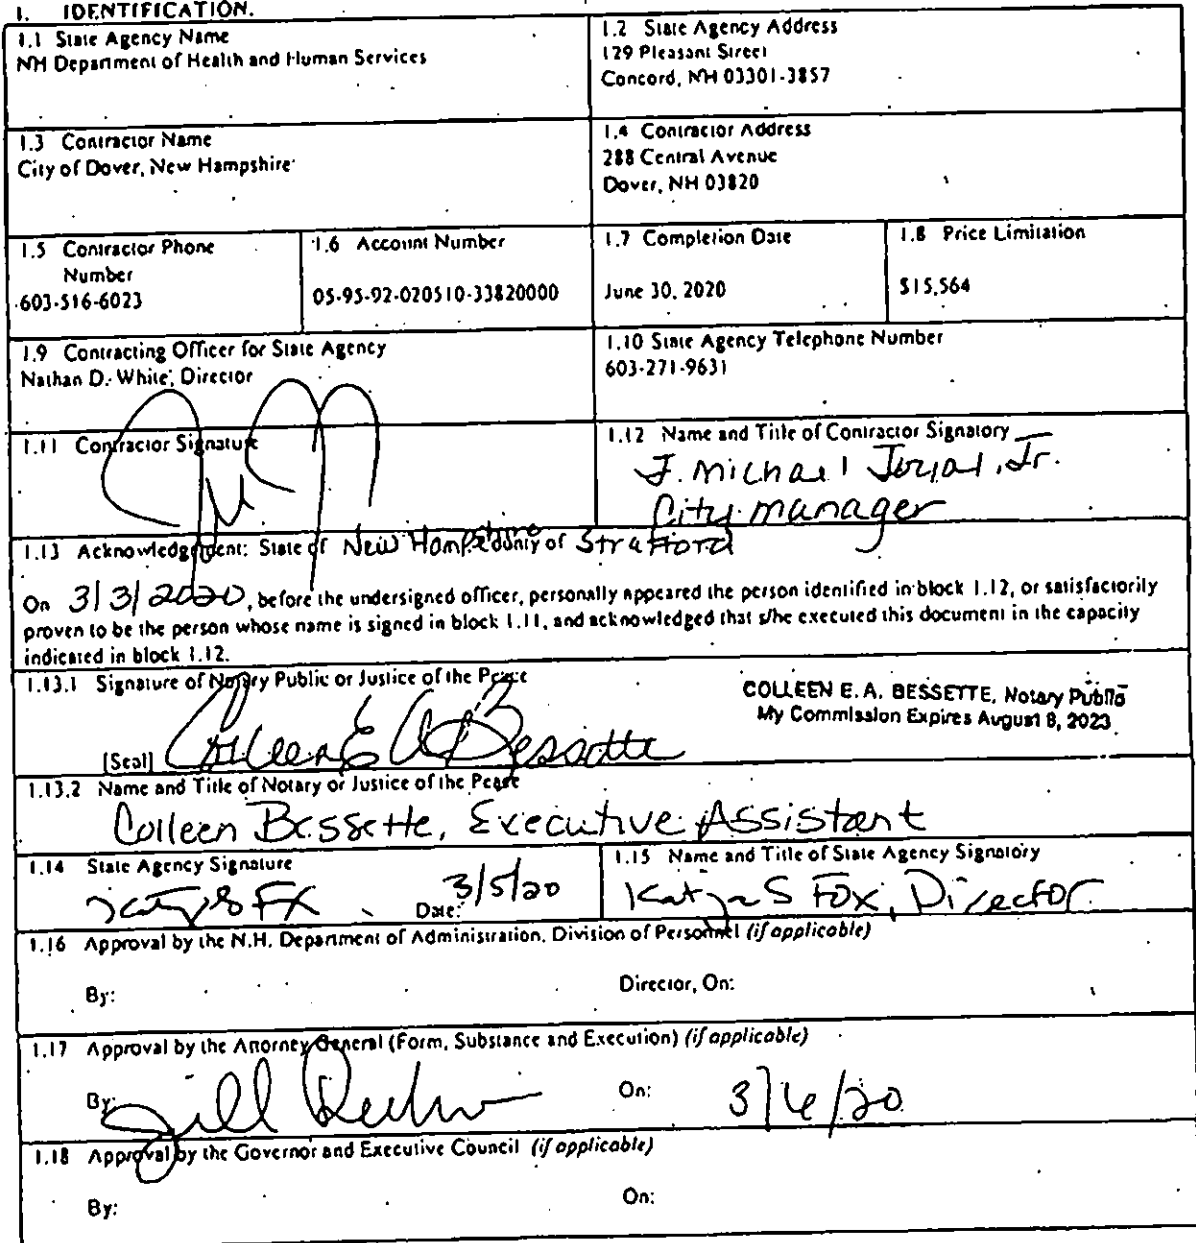 1. IDENTIFICATION.
1.1 State Agency Name
NH Department of Health and Human Services
1.2 State Agency Address
129 Pleasant Street
Concord, NH 03301-3857
1.3 Contractor Name
City of Dover, New Hampshire
1.4 Contractor Address
288 Central Avenue
Dover, NH 03820
1.5 Contractor Phone
Number
603-516-6023
1.6 Account Number
05-95-92-020510-33820000
1.7 Completion Date
June 30, 2020
1.8 Price Limitation
$15,564
1.9 Contracting Officer for State Agency
Nathan D. White, Director
1.10 State Agency Telephone Number
603-271-9631
1.11 Contractor Signature
1.12 Name and Title of Contractor Signatory
J. Michael Joyal, Jr.
City Manager
1.13 Acknowledgement: State of New Hampshire County of Strafford
On 3/3/2020, before the undersigned officer, personally appeared the person identified in block 1.12, or satisfactorily
proven to be the person whose name is signed in block 1.11, and acknowledged that s/he executed this document in the capacity
indicated in block 1.12.
1.13.1 Signature of Notary Public or Justice of the Peace
COLLEEN E. A. BESSETTE, Notary Public
My Commission Expires August 8, 2023
[Seal] Colleen E A Bessette
1.13.2 Name and Title of Notary or Justice of the Peace
Colleen Bessette, Executive Assistant
1.14 State Agency Signature
Date: 3/5/20
1.15 Name and Title of State Agency Signatory
Katja S Fox, Director
1.16 Approval by the N.H. Department of Administration, Division of Personnel (if applicable)
By: Director, On:
1.17 Approval by the Attorney General (Form, Substance and Execution) (if applicable)
By: Jill On: 3/6/20
1.18 Approval by the Governor and Executive Council (if applicable)
By: On: